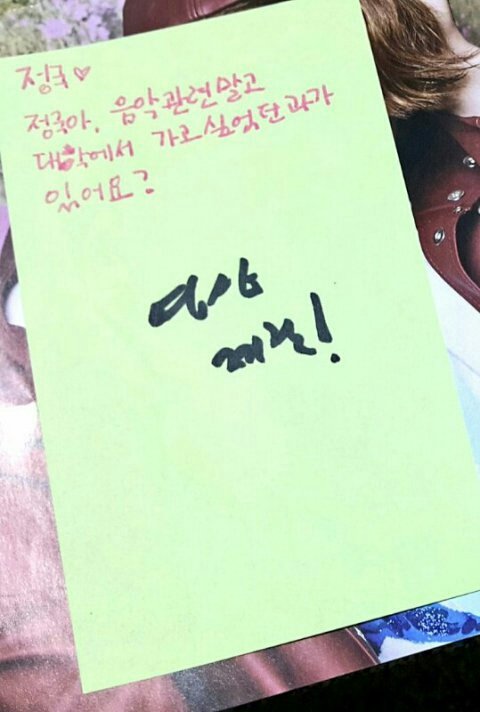 정국♥
정국아, 음악관련말고
대학에서 가고싶었던과가
있어요?
영상
제작!